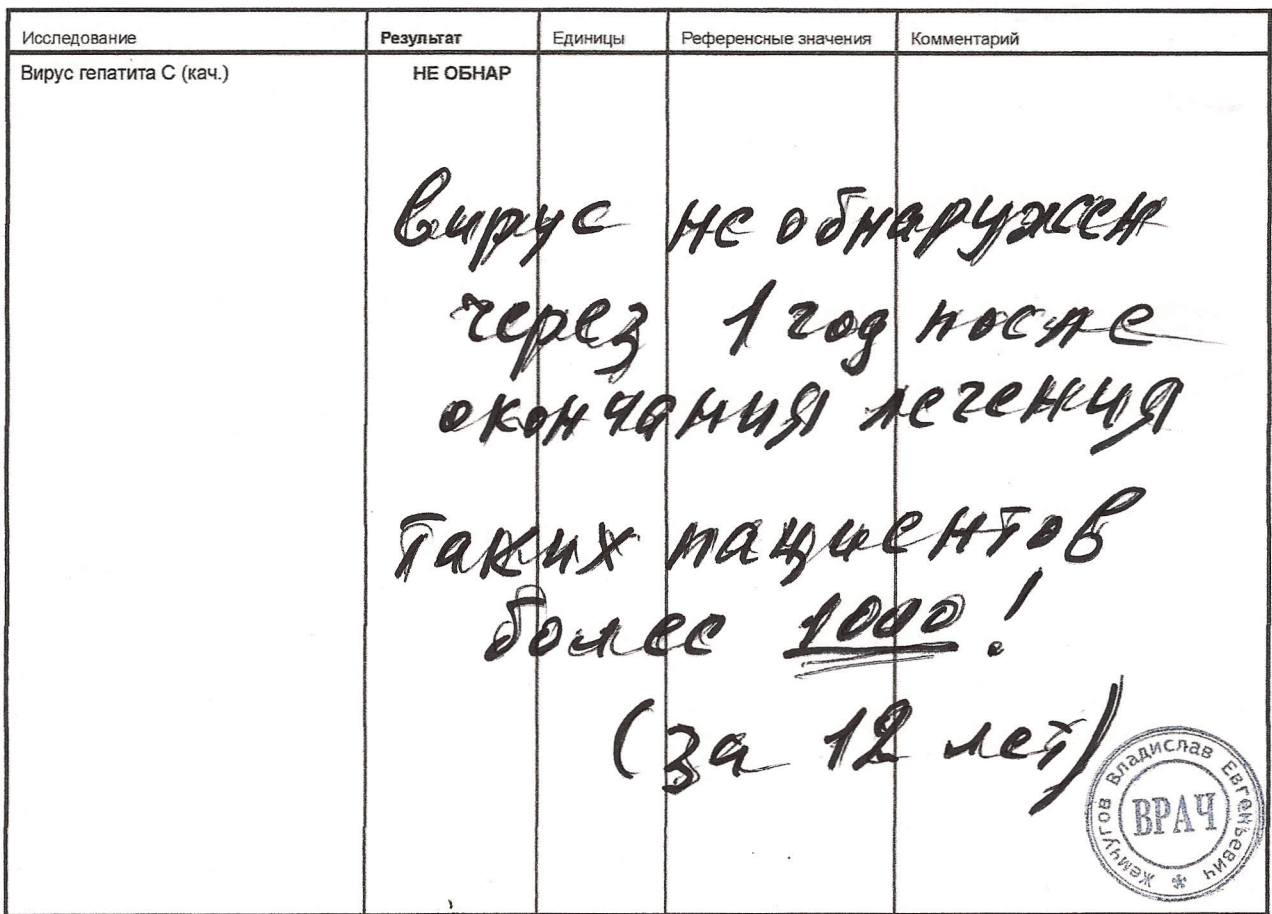 Исследование Результат Единицы Референсные значения Комментарий
Вирус гепатита С (кач.) НЕ ОБНАР
вирус не обнаружен
через 1 год после
окончания лечения
таких пациентов
более 1000!
(за 12 лет)
Жемчугов Владислав Евгеньевич
ВРАЧ